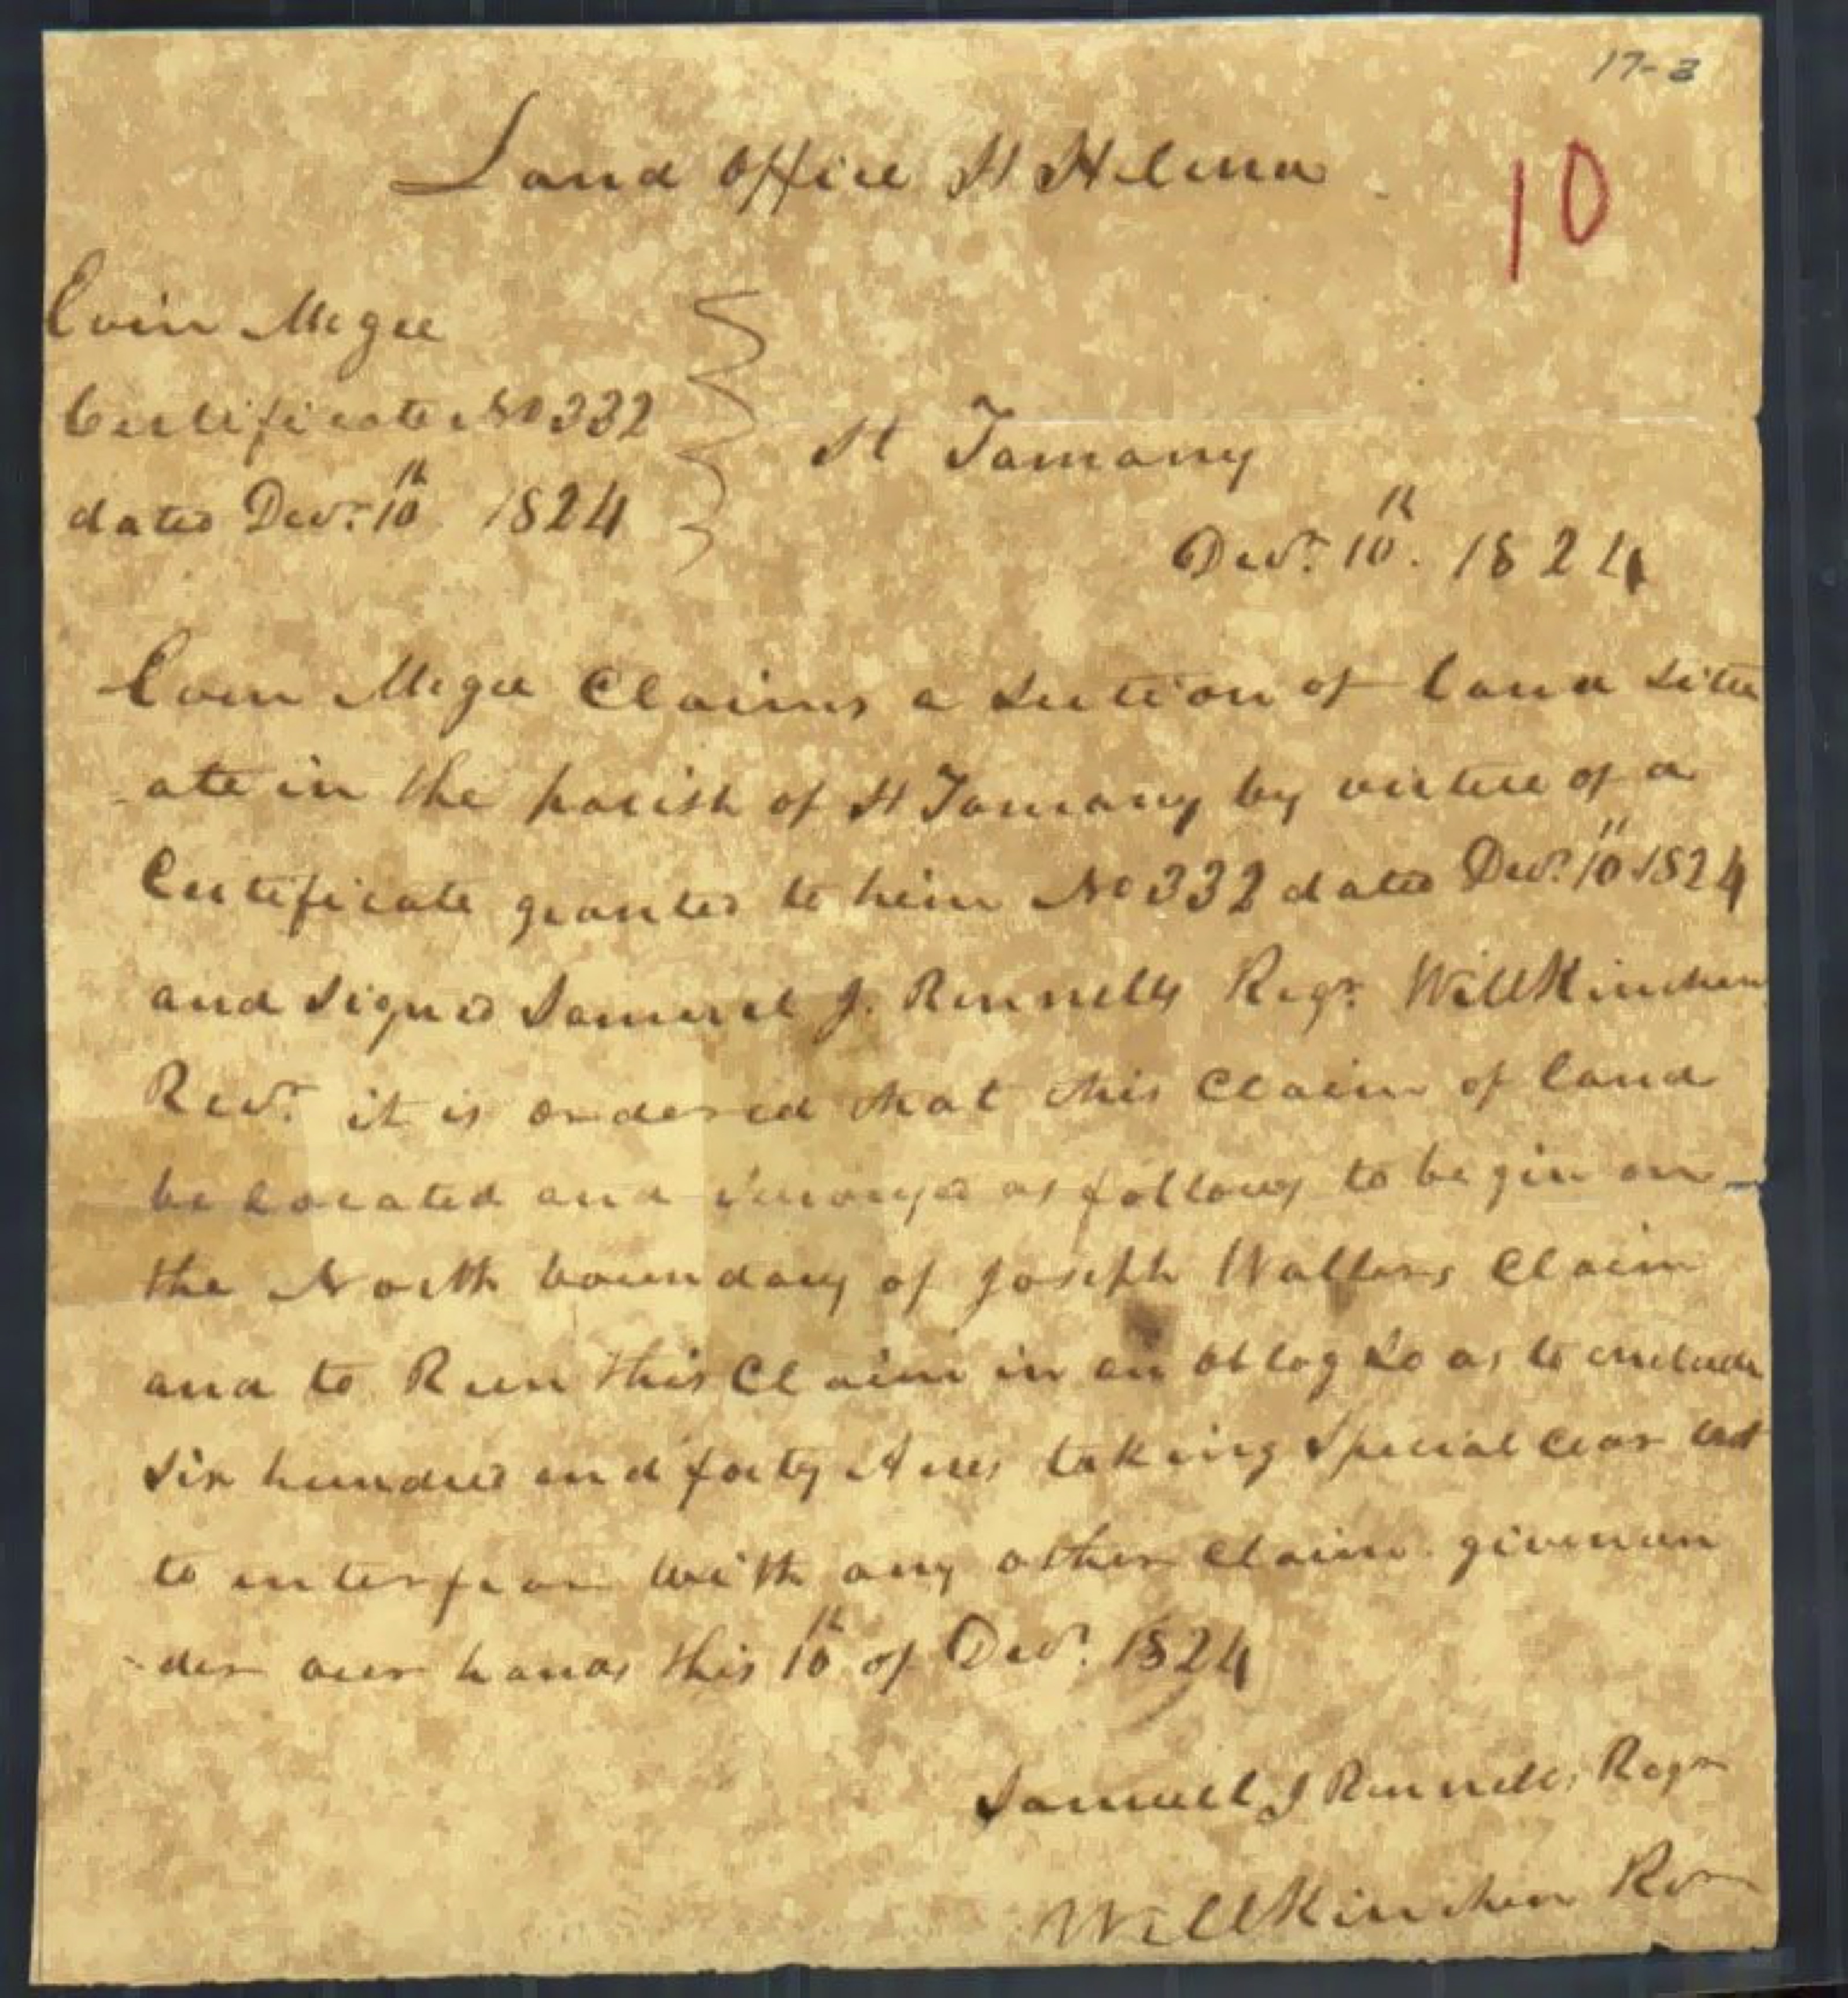 17-3
Land Office St Helena
10
Evin Megee
Certificate No 332
dated Decr. 10th 1824
St Tamany
Decr. 10th. 1824
Evin Megee Claims a Section of land situ
ate in the parish of St Tamany by virtue of a
Certificate granted to him No 332 dated Decr. 10th 1824
and signed Samuel J. Rennells Regr. Will Kinchen
Recvr. it is ordered that this Claim of land
be located and surveyd as follows to begin on
the North boundary of Joseph Walkers Claim
and to Run this Claim in an oblog so as to include
six hundred and forty Acres taking Special cear not
to interfear with any other claim. given un
der our hands this 10th of Decr. 1824
Samuel J Rennells, Regr
Will Kinchen Rcvr